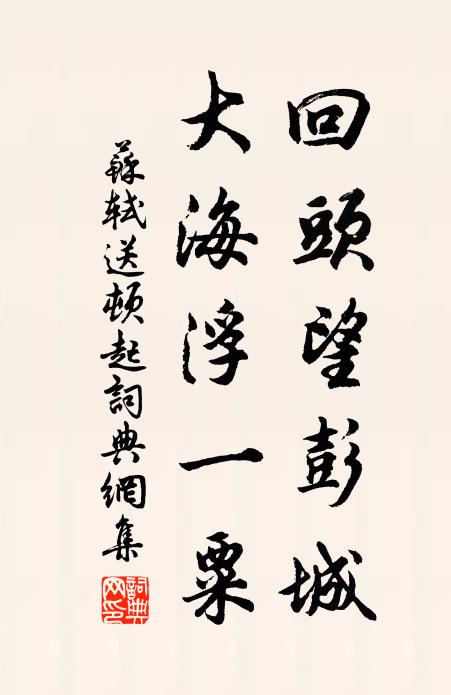 回頭望彭城
大海浮一粟
蘇軾送頓起詞典網集
詞典網印